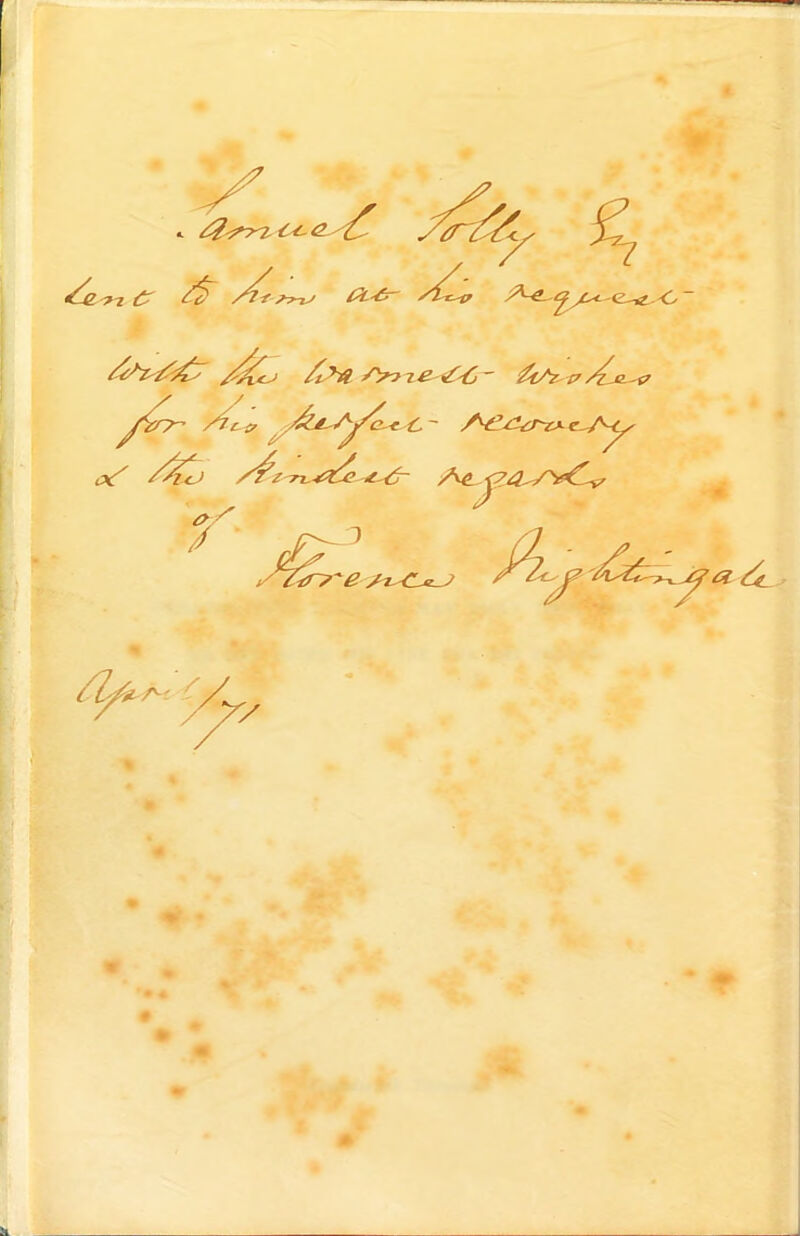 Samuel Solly Esq
sent to him at his request
with the warmest wishes
for his perfect recovery
& the kindest regards
of
Florence Nightingale
April/71